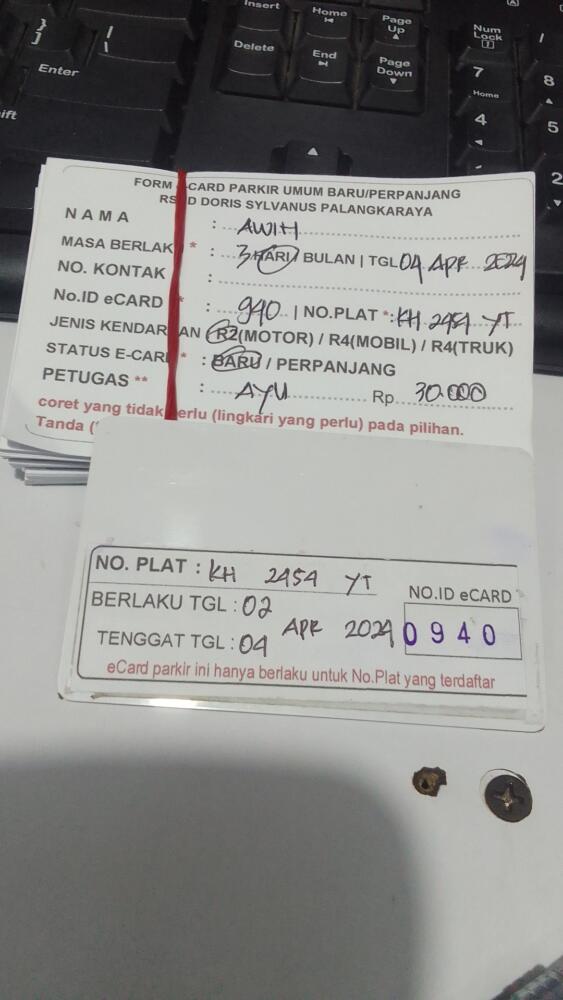 Insert
Home
Page Up
Num Lock
/
}
]
|
\
Delete
End
Page Down
7
Home
8
Enter
4
5
ift
2
FORM -CARD PARKIR UMUM BARU/PERPANJANG
RS D DORIS SYLVANUS PALANGKARAYA
NAMA : AWIH
MASA BERLAK * : 3 HARI / BULAN | TGL 04 APR 2024
NO. KONTAK :
No.ID eCARD * : 940 | NO.PLAT *: KH 2454 YT
JENIS KENDAR AN R2(MOTOR) / R4(MOBIL) / R4(TRUK)
STATUS E-CAR * : BARU / PERPANJANG
PETUGAS ** : AYU Rp. 30.000
coret yang tidak erlu (lingkari yang perlu) pada pilihan.
Tanda (
NO. PLAT : KH 2454 YT
NO.ID eCARD
BERLAKU TGL : 02
APR 2024
0940
TENGGAT TGL : 04
eCard parkir ini hanya berlaku untuk No.Plat yang terdaftar